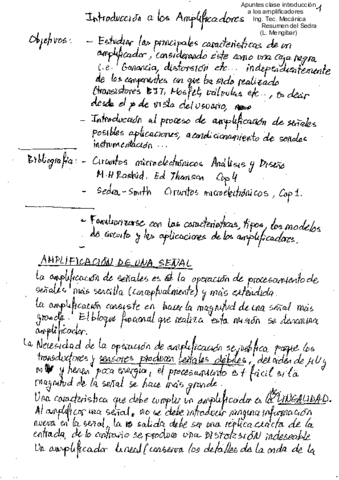 Apuntes clase introducción
a los amplificadores
Ing. Tec. Mecánica
Resumen del Sedra
(L. Mengibar)
1
Introducción a los Amplificadores
Objetivos: - Estudiar las principales características de un
amplificador, considerando éste como una caja negra
i.e. Ganancia, distorsión etc... independientemente
de los componentes con que ha sido realizado
(transistores BJT, Mosfet, válvulas etc..., es decir
desde el p de vista del usuario,
- Introducción al proceso de amplificación de señales
posibles aplicaciones, acondicionamiento de señales
instrumentación...
Bibliografía: - Circuitos microelectrónicos Análisis y Diseño
M.H Rashid. Ed Thomson Cap 4
- Sedra-Smith Circuitos microelectrónicos, Cap 1.
- Familiarizarse con las características, tipos, los modelos
de circuito y las aplicaciones de los amplificadores.
AMPLIFICACIÓN DE UNA SEÑAL
La amplificación de señales es la operación de procesamiento de
señales más sencilla (conceptualmente) y más extendida.
La amplificación consiste en hacer la magnitud de una señal más
grande. El bloque funcional que realiza esta misión se denomina
amplificador.
La Necesidad de la operación de amplificación se justifica porque los
transductores y sensores producen señales débiles, del orden de μV y
mV y tienen poca energía, el procesamiento es + fácil si la
magnitud de la señal se hace más grande.
Una característica que debe cumplir un amplificador es la LINEALIDAD.
Al amplificar una señal, no se debe introducir ninguna información
nueva en la señal, la salida debe ser una réplica exacta de la
entrada, de lo contrario se produce una DISTORSIÓN indeseable
Un amplificador lineal conserva los detalles de la onda de la